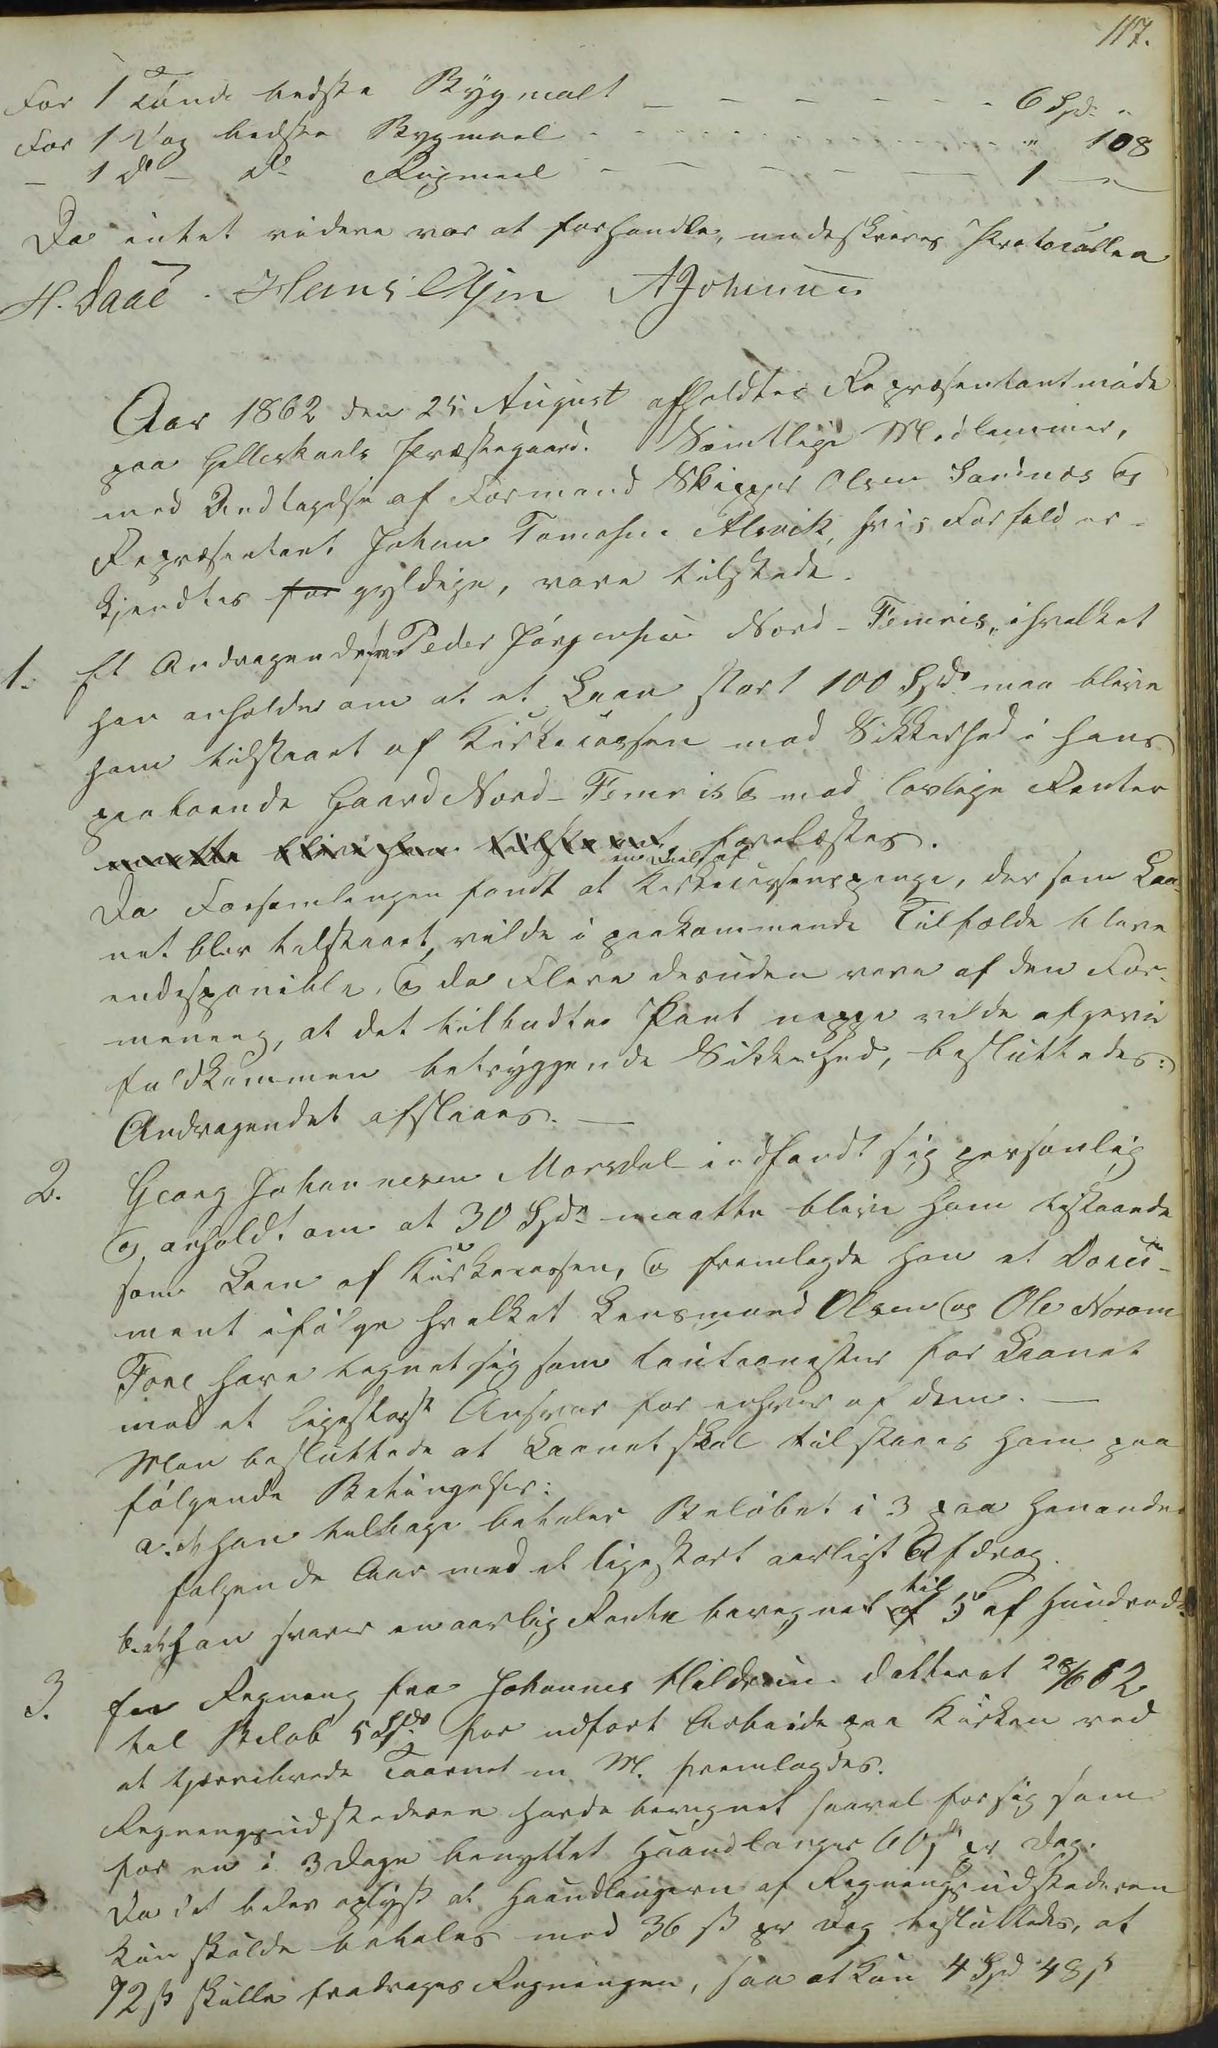 117.
For 1 Tønde bedste Bygmalt - - - - - - 6 Spd: "
For 1 Vog bedste Bygmeel - - - - - - " 108
- 1 do - do Rugmeel - - - - - - 1 - "
Da intet videre var at forhandle, underskreves Protocollen
H. Daae. Hans AJohnsen
Aar 1862 den 25 August afholdtes Repræsentantmøde
paa Gilleskaals Præstegaard. Samtlige Medlemmer,
med Undtagelse af Formand Skipper Olsen Sandnæs og
Repræsentant Johan Tomasen Alsvik, hvis Forfald er-
kjendtes for gyldige, vare tilstede.
1. Et Andragende fra Peder Jørgensen Nord-Femris, i hvilket
han anholder om at et Laan stort 100 Spd: maa blive
ham tilstaaet af Kirkecassen mod Sikkerhed i hans
paaboende Gaard Nord-Femris & mod lovlige Renter
maatte blive ham tilstaaet, forelæstes.
en Deel af
Da Forsamlingen fandt at Kirkecassens penge, der som Laa-
net blev tilstaaet, vilde i paakommende Tilfælde blive
endisponible, & da Flere desuden vare af den For-
mening, at det tilbudte Pant neppe vilde afgive
fuldkommen betryggende Sikkerhed, besluttedes:
Andragendet afslaaes. -
2. Georg Johannesen Morsdal indfandt sig personlig
og anholdt om at 30 Spd: maatte blive ham tilstaaede
som Laan af Kirkecassen, & fremlagde han et Docu-
ment ifølge hvilket Lensmand Olsen og Ole Noram
Fore have tegnet sig som Cautionister for Laanet
med et ligestort Ansvar for enhver af dem. -
Man besluttede at Laanet skal tilstaaes ham paa
følgende Betingelser:
a. At han tilbage betaler Beløbet i 3 paa hinanden
følgende Aar med et ligestort aarligt Afdrag.
til
b. At han svarer en aarlig Rente beregnet af 5 af Hundrede.
3. En Regning fra Johannes Hildrum datteret 28/6 62
tal Beløb 5 Spd: for udført Arbeide paa Kirken ved
at tjærebrede Taarnet m M. fremlagdes.
Regningsudstederen havde beregnet saavel for sig som
for en i 3 Dage benyttet Haandlanger 60 ß pr Dag.
Da det blev oplyst at Haandlangeren af Regningsudstederen
kun skulde betales med 36 ß pr Dag besluttedes, at
72 ß skulle fradrages Regningen, saa at kun 4 Spd 48 ß